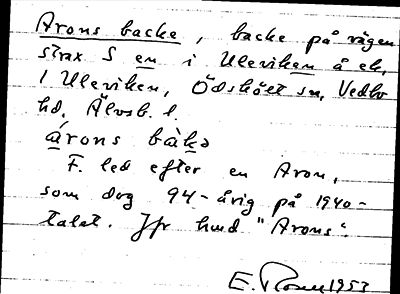 Arons backe, backe på vägen
strax S en i Uleviken å ek.
1 Uleviken, Ödskölt sn, Vedbo
hd, Älvsb. l.
árons bàkə
F. led efter en Aron,
som dog 94-årig på 1940-
talet. Jfr hmd "Arons".
E. 1953